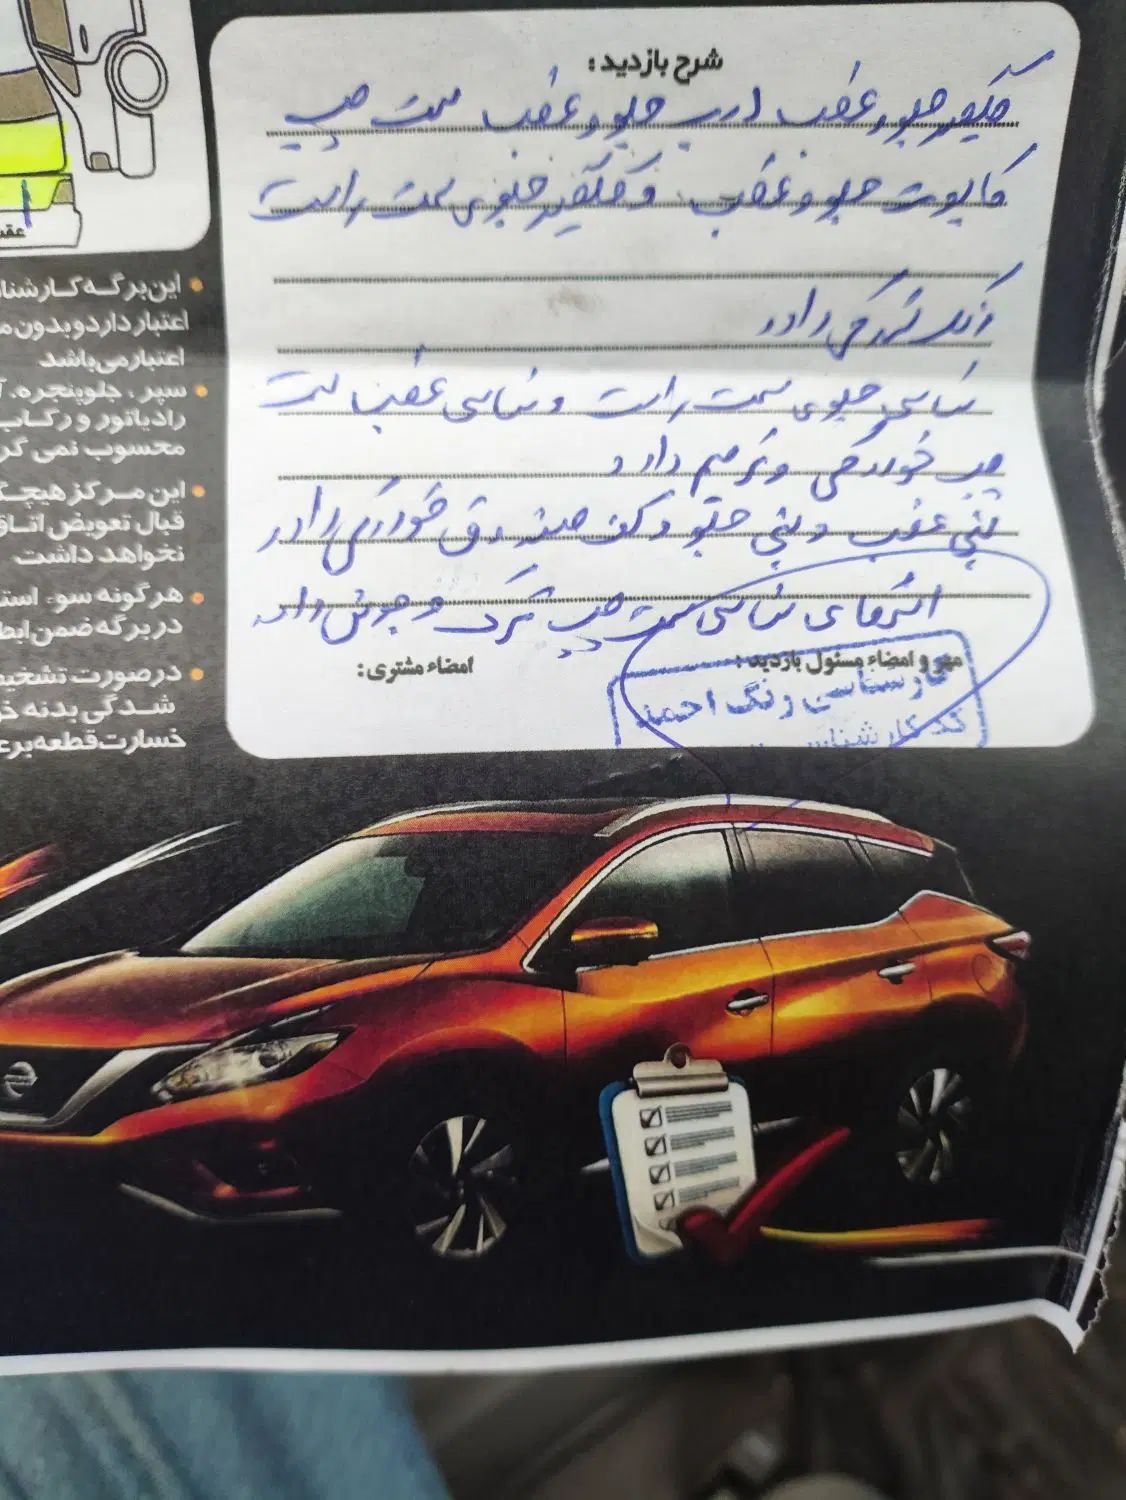 شرح بازدید :
گلگیر جلو و عقب درب جلو و عقب سمت چپ
کاپوت جلو و عقب و گلگیر جلوی سمت راست
رنگ شدگی دارد
شاسی جلوی سمت راست و شاسی عقب سمت
چپ خوردگی و ترمیم دارد
سینی عقب و سینی جلو و کف صندوق خوردگی دارد
انتهای شاسی سمت چپ ترک و جوش دارد
مهر و امضاء مسئول بازدید :
امضاء مشتری :
کارشناسی رنگ احمد
کد کارشناس
عقب
این برگه کارشنا
اعتبار دارد و بدون م
اعتبار می باشد
سپر ، جلوپنجره، آ
رادیاتور و رکاب
محسوب نمی گر
این مرکز هیچگ
قبال تعویض اتاق
نخواهد داشت
هرگونه سوء است
در برگه ضمن ابط
درصورت تشخیص
شدگی بدنه خو
خسارت قطعه بر ع